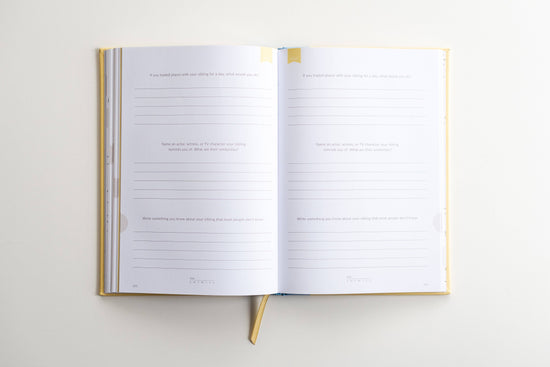 If you traded places with your sibling for a day, what would you do?
Name an actor, actress, or TV character your sibling
reminds you of. What are their similarities?
Write something you know about your sibling that most people don't know.
If you traded places with your sibling for a day, what would you do?
Name an actor, actress, or TV character your sibling
reminds you of. What are their similarities?
Write something you know about your sibling that most people don't know.